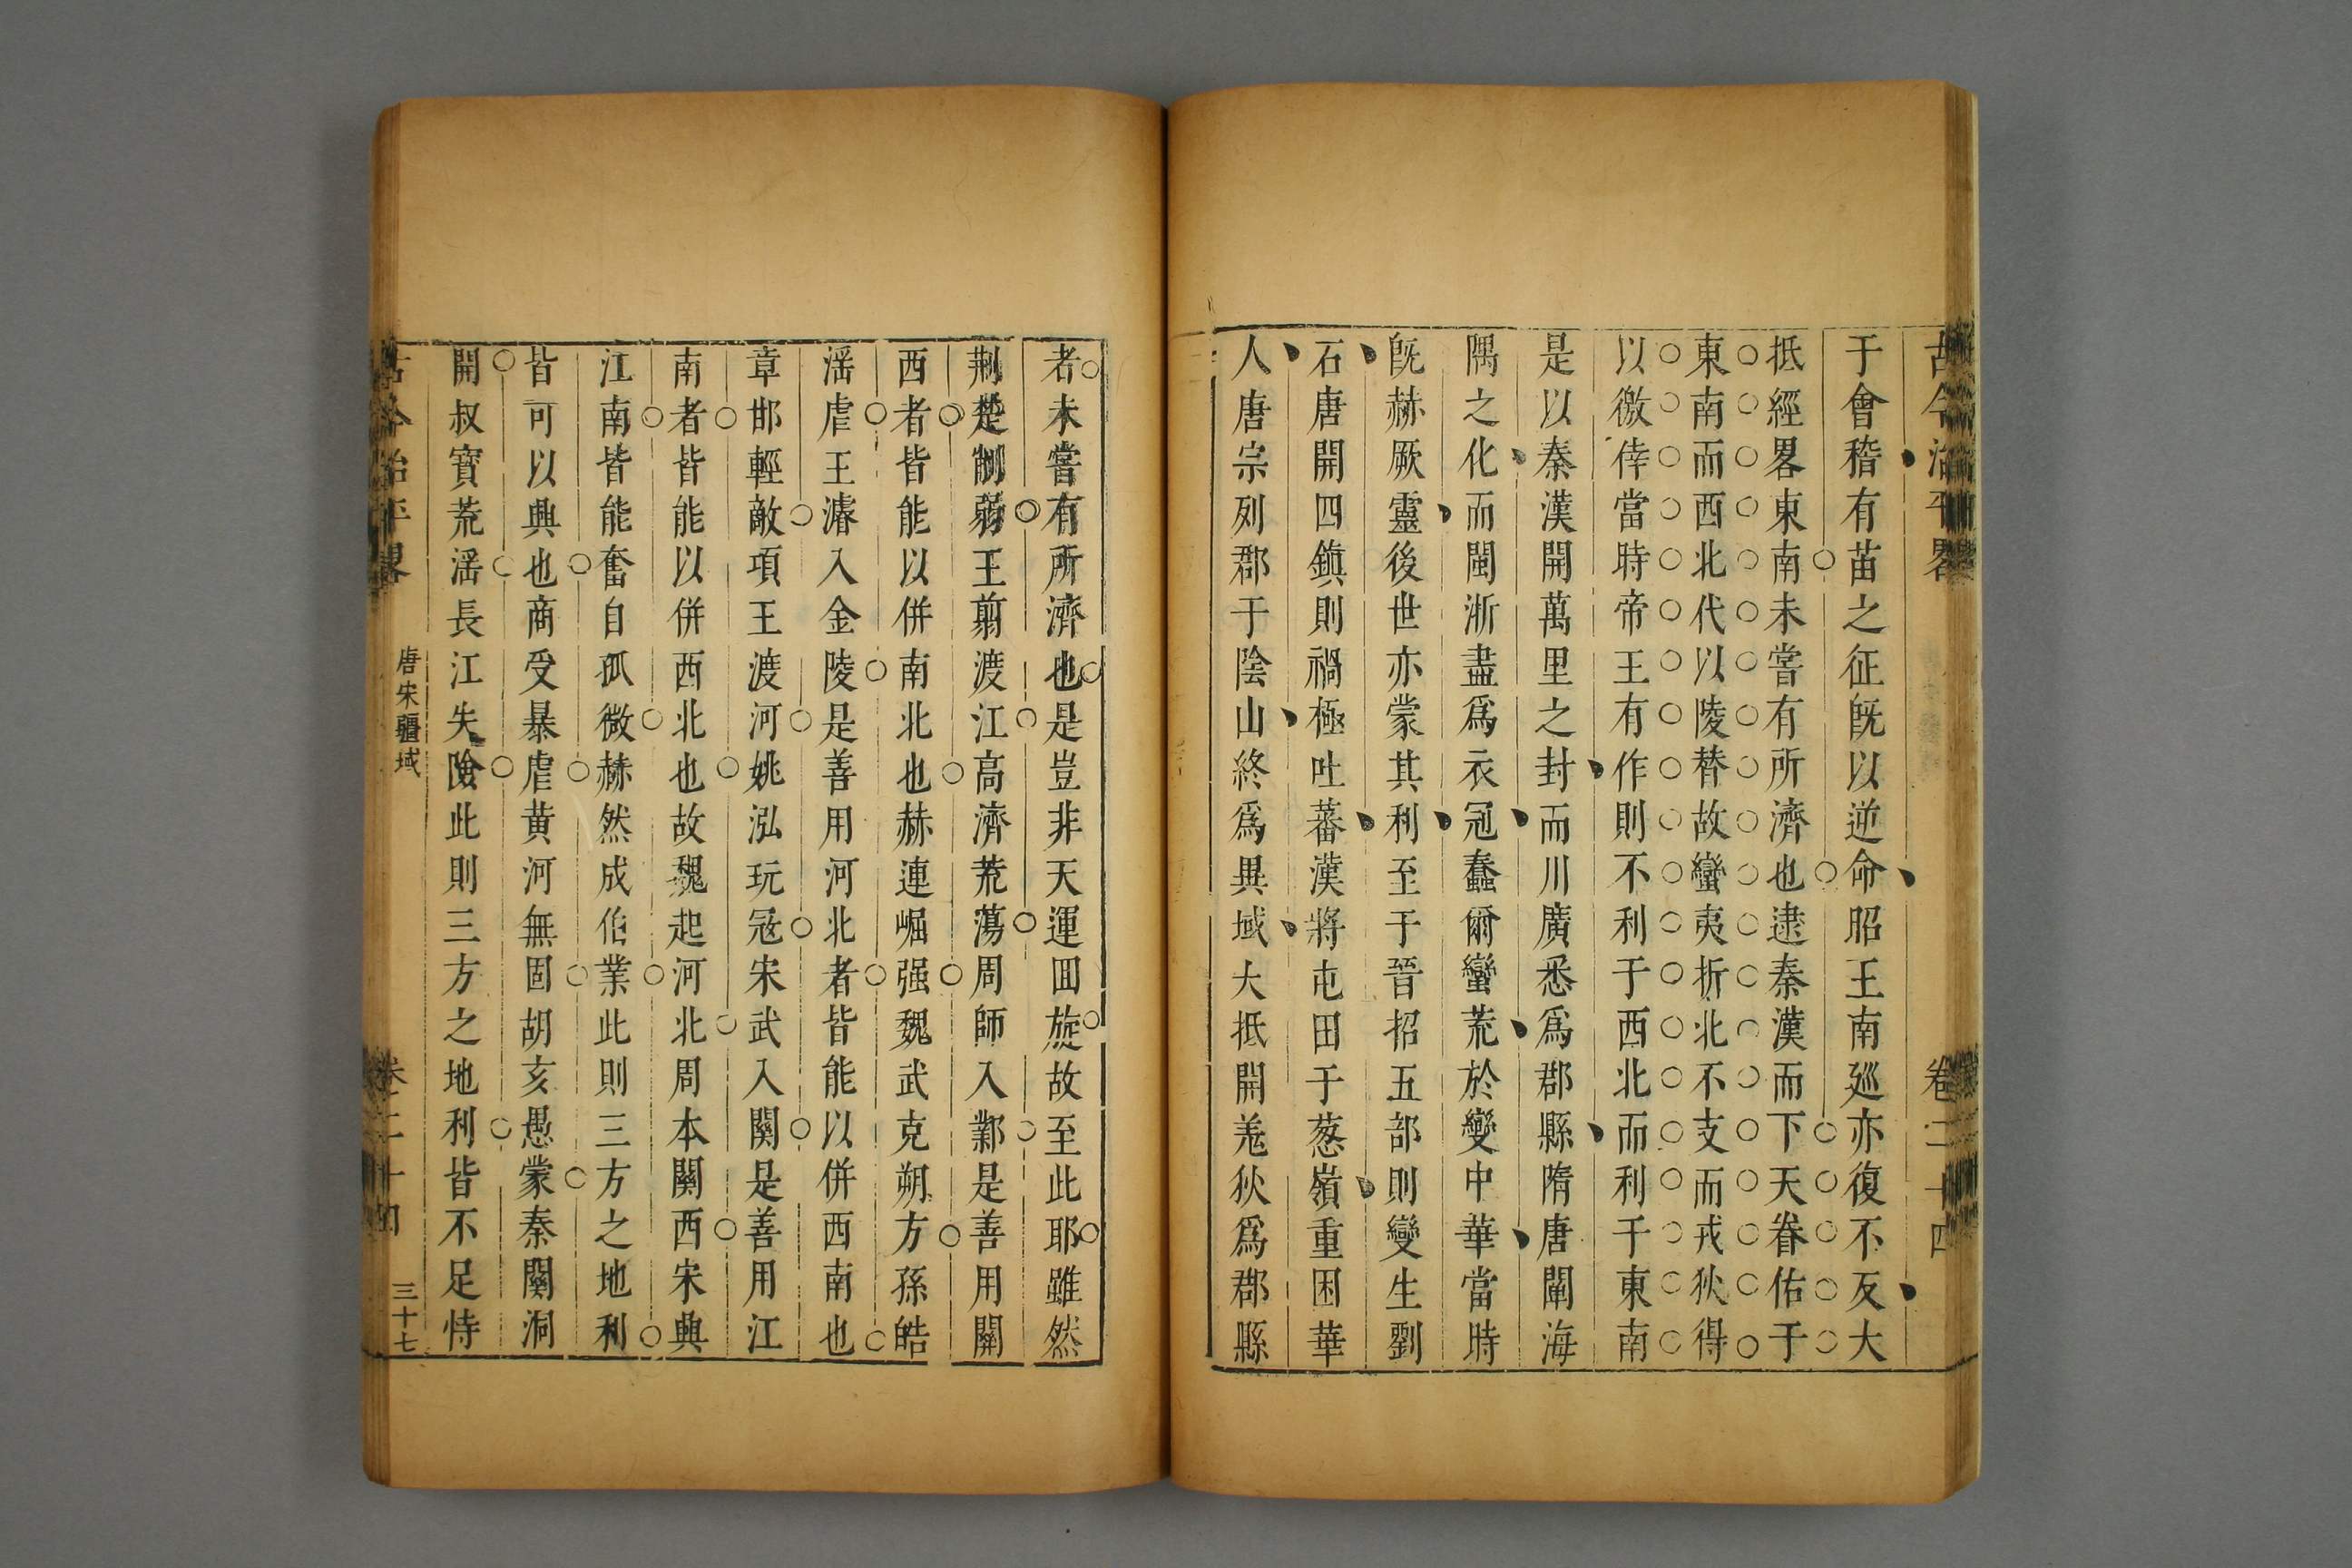 古今治平畧 卷二十四
于會稽有苗之征旣以逆命昭王南廵亦復不反大
抵經畧東南未嘗有所濟也逮秦漢而下天眷佑于
東南而西北代以陵替故蠻夷折北不支而戎狄得
以徼倖當時帝王有作則不利于西北而利于東南
是以秦漢開萬里之封而川廣悉爲郡縣隋唐闡海
隅之化而閩浙盡爲衣冠蠢爾蠻荒於變中華當時
旣赫厥靈後世亦蒙其利至于晉招五部則變生劉
石唐開四鎮則禍極吐蕃漢將屯田于葱嶺重困華
人唐宗列郡于陰山終爲異域大抵開羗狄爲郡縣
者未嘗有所濟也是豈非天運囬旋故至此耶雖然
荆楚制弱王翦渡江高濟荒蕩周師入鄴是善用關
西者皆能以併南北也赫連崛强魏武克朔方孫皓
滛虐王濬入金陵是善用河北者皆能以併西南也
章邯輕敵項王渡河姚泓玩冦宋武入關是善用江
南者皆能以併西北也故魏起河北周本關西宋興
江南皆能奮自孤微赫然成伯業此則三方之地利
皆可以興也商受暴虐黄河無固胡亥愚蒙秦關洞
開叔寳荒滛長江失險此則三方之地利皆不足恃
古今治平畧 唐宋疆域 卷二十四 三十七